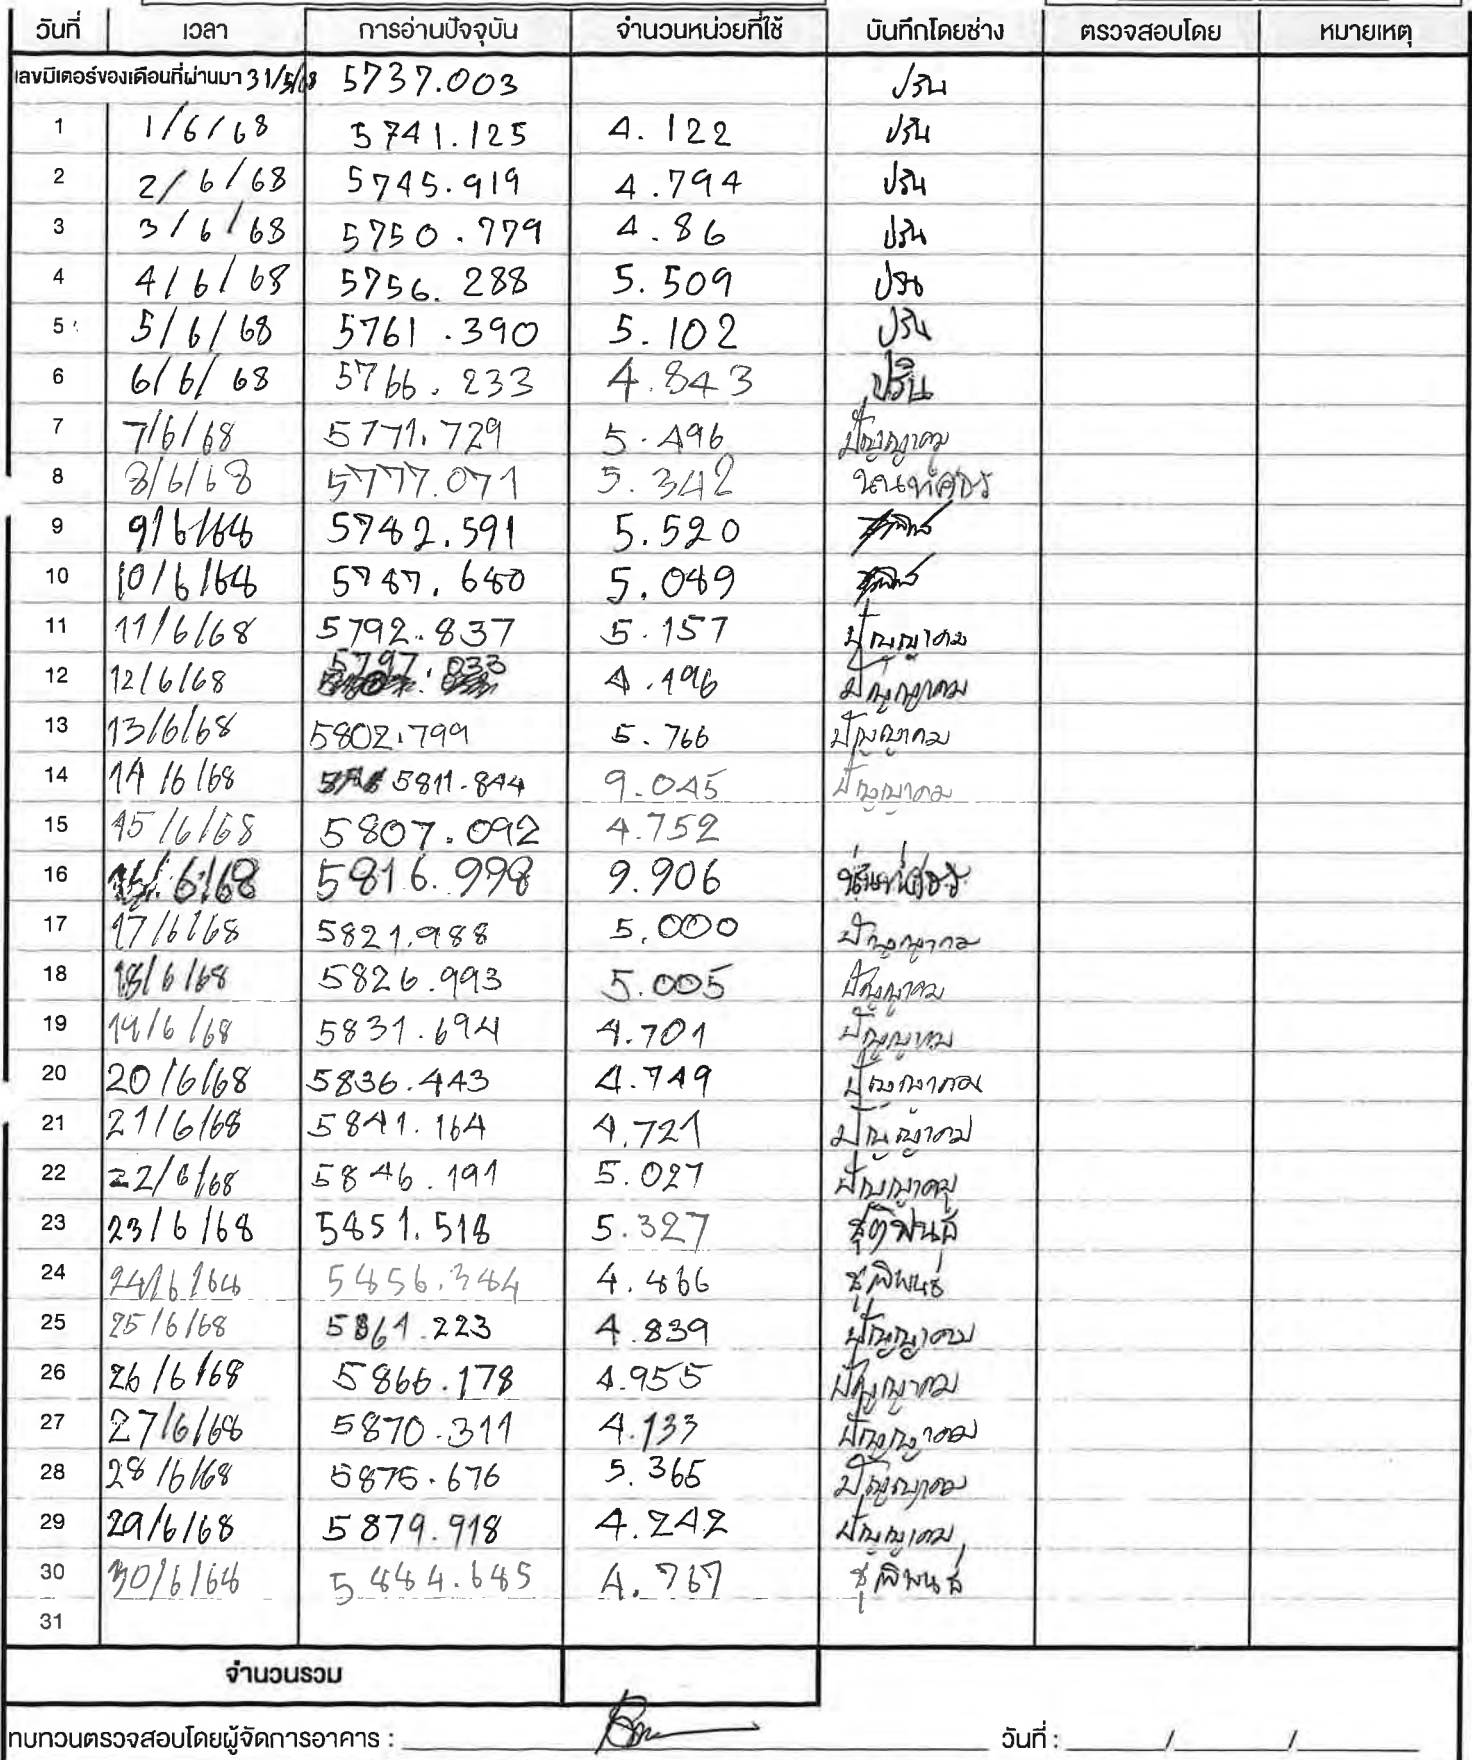 วันที่ เวลา การอ่านปัจจุบัน จำนวนหน่วยที่ใช้ บันทึกโดยช่าง ตรวจสอบโดย หมายเหตุ
เลขมิเตอร์ของเดือนที่ผ่านมา 31/5/68 5737.003 ปริน
1 1/6/68 5741.125 4.122 ปริน
2 2/6/68 5745.919 4.794 ปริน
3 3/6/68 5750.779 4.86 ปริน
4 4/6/68 5756.288 5.509 ปริน
5 5/6/68 5761.390 5.102 ปริน
6 6/6/68 5766.233 4.843 ปริน
7 7/6/68 5771.729 5.496 ปัญญาคม
8 8/6/68 5777.071 5.342
9 9/6/68 5782.591 5.520
10 10/6/68 5787.680 5.089
11 11/6/68 5792.837 5.157 ปัญญาคม
12 12/6/68 5797.033 4.196 ปัญญาคม
13 13/6/68 5802.799 5.766 ปัญญาคม
14 14/6/68 5811.844 9.045 ปัญญาคม
15 15/6/68 5807.092 4.752
16 16/6/68 5816.998 9.906
17 17/6/68 5821.988 5.000 ปัญญาคม
18 18/6/68 5826.993 5.005 ปัญญาคม
19 19/6/68 5831.694 4.701 ปัญญาคม
20 20/6/68 5836.443 4.749 ปัญญาคม
21 21/6/68 5841.164 4.721 ปัญญาคม
22 22/6/68 5846.191 5.027 ปัญญาคม
23 23/6/68 5851.518 5.327 ชุติพันธ์
24 24/6/68 5856.384 4.866 ชุติพันธ์
25 25/6/68 5861.223 4.839 ปัญญาคม
26 26/6/68 5866.178 4.955 ปัญญาคม
27 27/6/68 5870.311 4.133 ปัญญาคม
28 28/6/68 5875.676 5.365 ปัญญาคม
29 29/6/68 5879.918 4.242 ปัญญาคม
30 30/6/68 5884.685 4.767 ชุติพันธ์
31
จำนวนรวม
ทบทวนตรวจสอบโดยผู้จัดการอาคาร : วันที่ : / /